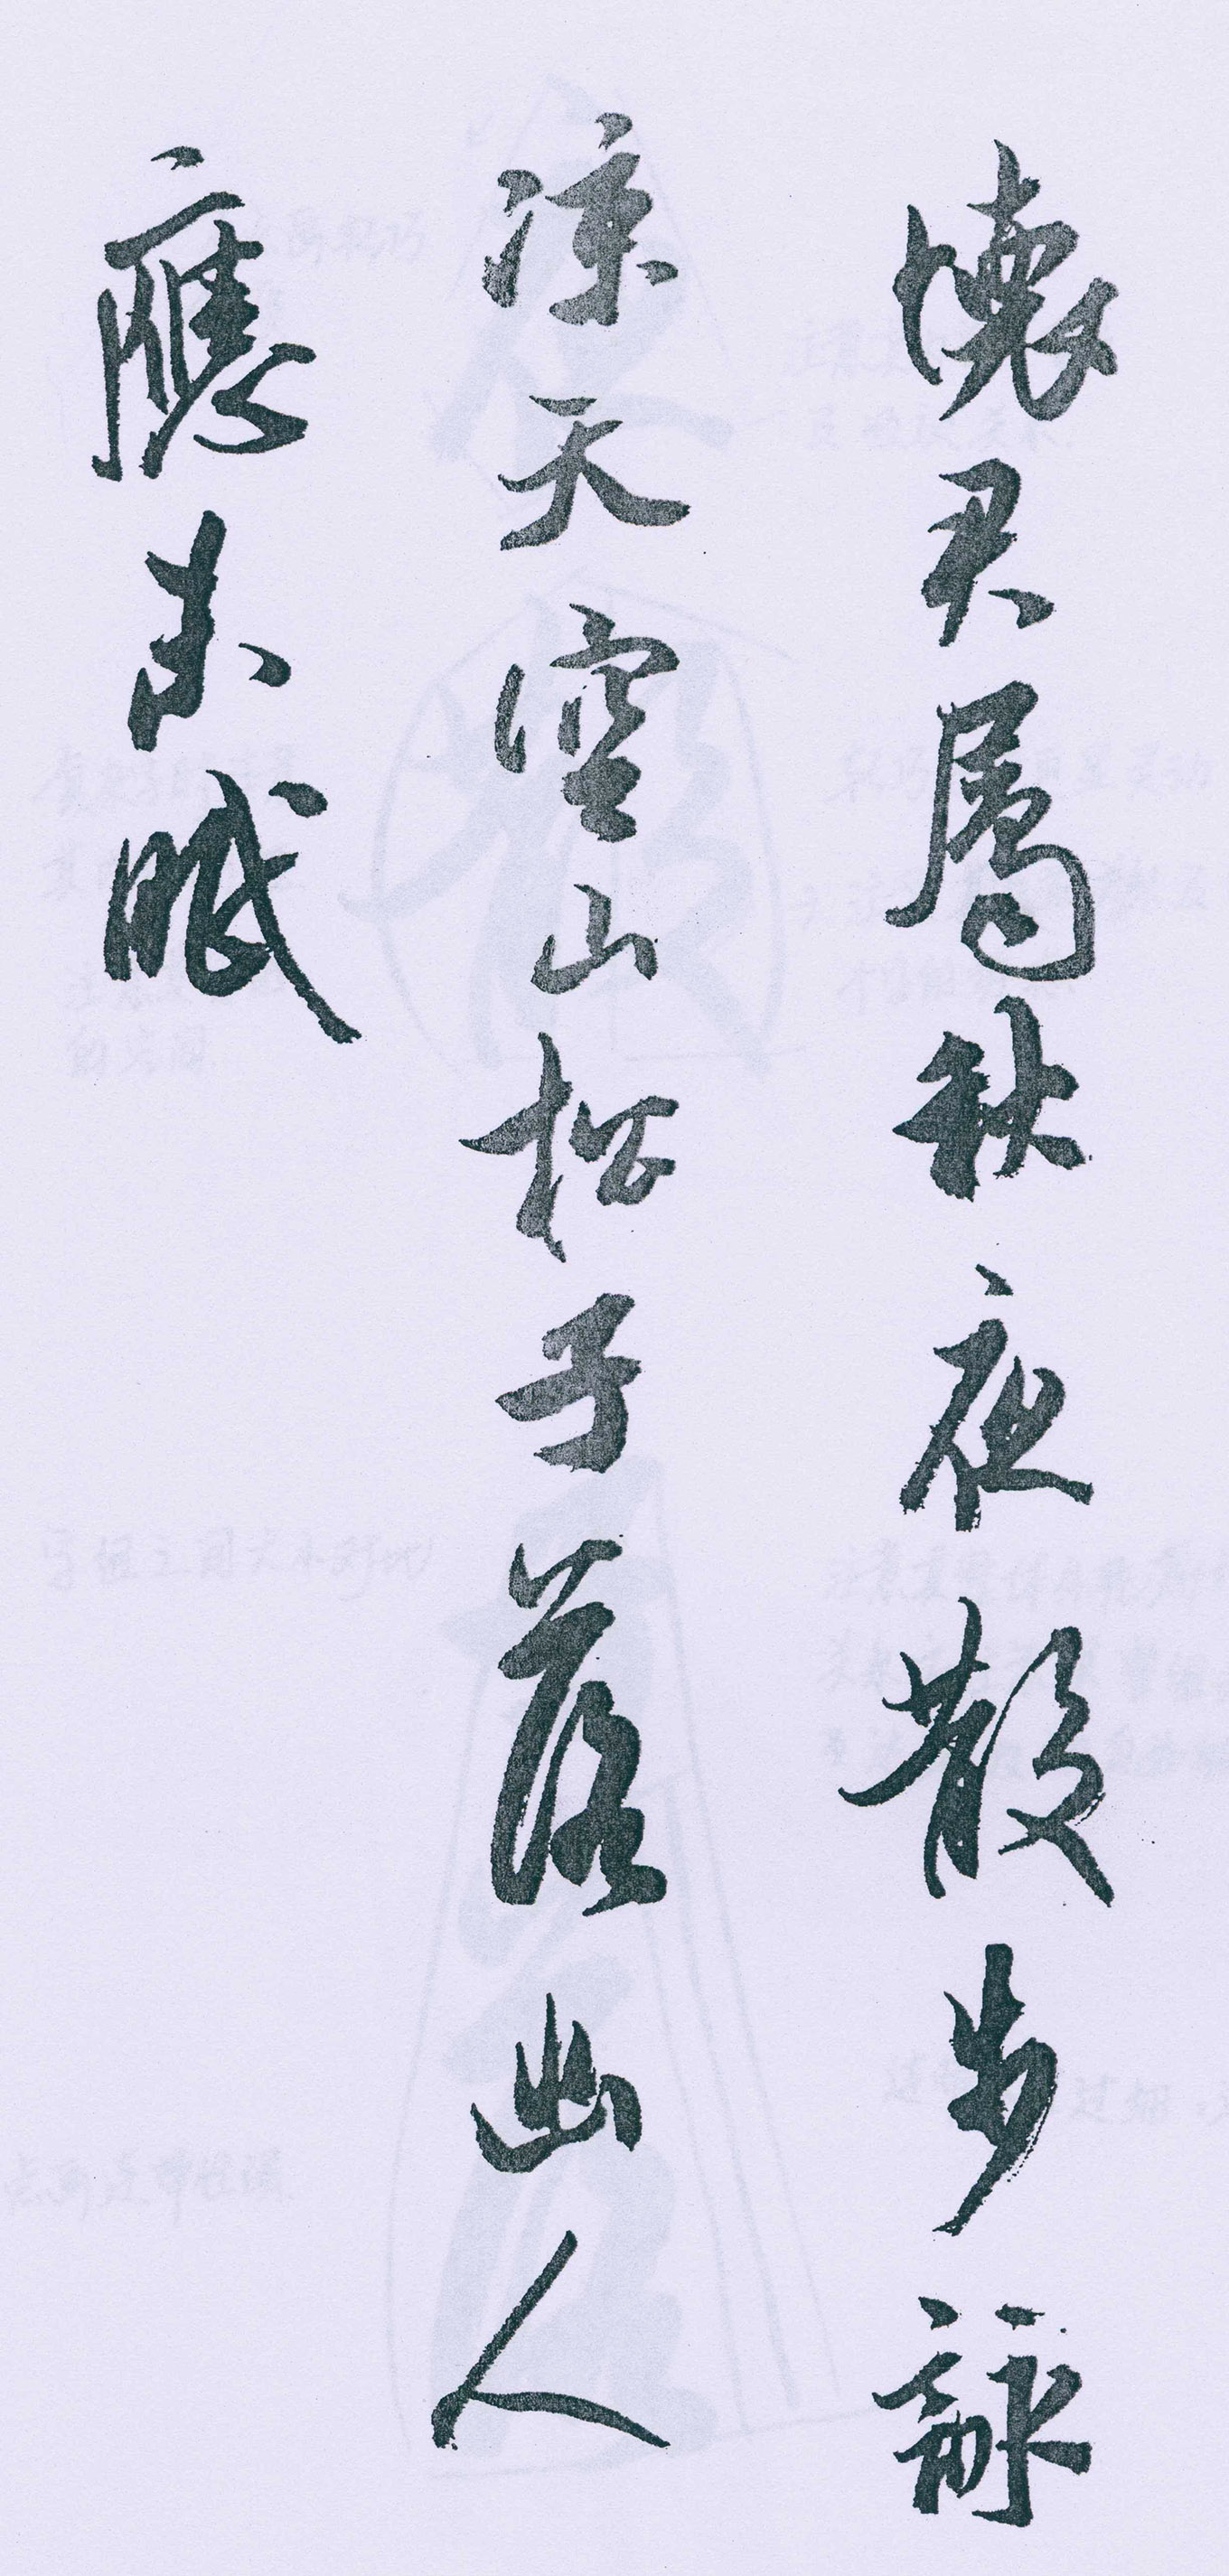 懷君屬秋夜散步詠
涼天空山松子落幽人
應未眠